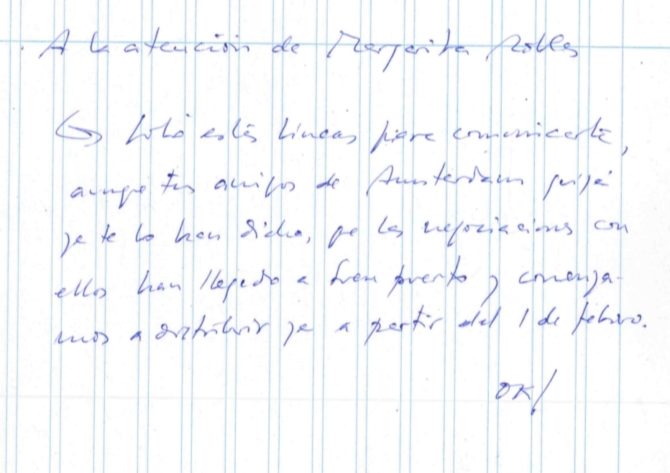 A la atención de Margarita Robles
Sólo estas líneas para comunicarte,
aunque tus amigos de Amsterdam quizá
ya te lo han dicho, que las negociaciones con
ellos han llegado a buen puerto y comenza-
mos a distribuir ya a partir del 1 de febrero.
OK!